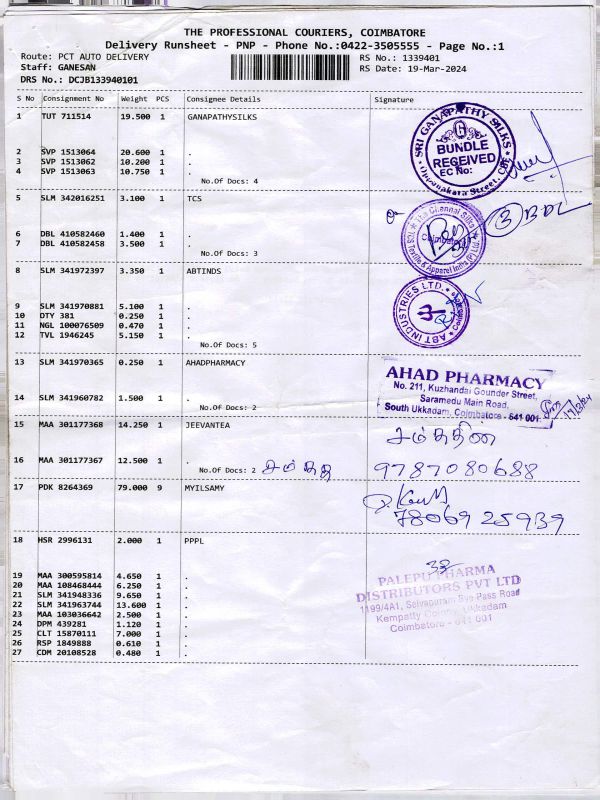 THE PROFESSIONAL COURIERS, COIMBATORE
Delivery Runsheet - PNP - Phone No.:0422-3505555 - Page No.:1
Route: PCT AUTO DELIVERY RS No.: 1339401
Staff: GANESAN RS Date: 19-Mar-2024
DRS No.: DCJB133940101
S No Consignment No Weight PCS Consignee Details Signature
1 TUT 711514 19.500 1 GANAPATHYSILKS
SRI GANAPATHY SILKS
BUNDLE
RECEIVED
EC No:
Oppanakara Street, CBE
2 SVP 1513064 20.600 1 .
3 SVP 1513062 10.200 1 .
4 SVP 1513063 10.750 1 .
No.Of Docs: 4
5 SLM 342016251 3.100 1 TCS
3 BDL
The Chennai Silks
Coimbatore
TCS Textile & Apparel India (P) Ltd.
6 DBL 410582460 1.400 1 .
7 DBL 410582458 3.500 1 .
No.Of Docs: 3
8 SLM 341972397 3.350 1 ABTINDS
ABT INDUSTRIES LTD.
9 SLM 341970881 5.100 1 .
10 DTY 381 0.250 1 .
11 NGL 100076509 0.470 1 .
12 TVL 1946245 5.150 1 .
No.Of Docs: 5
13 SLM 341970365 0.250 1 AHADPHARMACY
AHAD PHARMACY
No. 211, Kuzhandai Gounder Street,
Saramedu Main Road,
South Ukkadam, Coimbatore - 641 001.
19/3/24
14 SLM 341960782 1.500 1 .
No.Of Docs: 2
15 MAA 301177368 14.250 1 JEEVANTEA
16 MAA 301177367 12.500 1 .
No.Of Docs: 2
9787080688
17 PDK 8264369 79.000 9 MYILSAMY
78069 25939
18 HSR 2996131 2.000 1 PPPL
PALEPU PHARMA
DISTRIBUTORS PVT LTD
1199/4A1, Selvapuram Bye Pass Road
Kempatty Colony, Ukkadam
Coimbatore - 641 001
19 MAA 300595814 4.650 1 .
20 MAA 108468444 6.250 1 .
21 SLM 341948336 9.650 1 .
22 SLM 341963744 13.600 1 .
23 MAA 103036642 2.500 1 .
24 DPM 439281 1.120 1 .
25 CLT 15870111 7.000 1 .
26 RSP 1849888 0.610 1 .
27 CDM 20108528 0.480 1 .